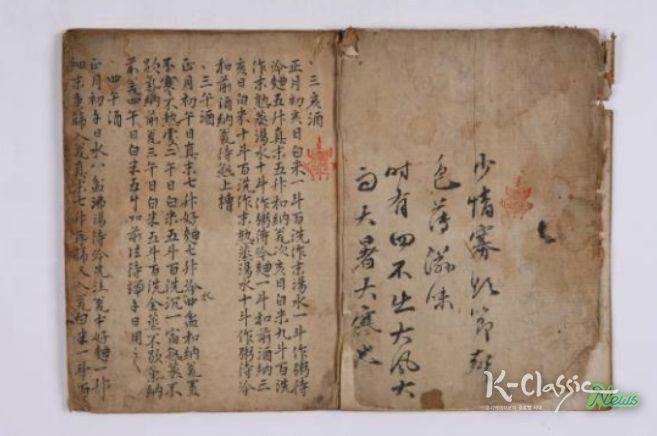 少情寡欲節聲
色薄滋味
時有四不出大風大
雨大暑大寒也
三亥酒
正月初亥日白米一斗百洗作末湯水一斗作粥待
冷麯五升真末五升和納瓮次亥日白米九斗百洗
作末熟蒸湯水十斗作粥待冷麯一斗和前酒納三
亥日白米十斗百洗作末熟蒸湯水十斗作粥待冷
和前酒納瓮待熟上槽
三午酒
正月初午日真末七升好麯七升冷水四盆和納瓮置
不寒不熱處二午日白米五斗百洗沉一宿熟蒸不
歇氣納前瓮三午日白米五斗百洗全蒸不歇氣納
前瓮四午日白米五斗如前法待端午日用之
四午酒
正月初午日水八盆沸湯待冷先注瓮中好麯一升
細末重篩入瓮真末七升再篩又入瓮白米一斗百
K-Classic
News